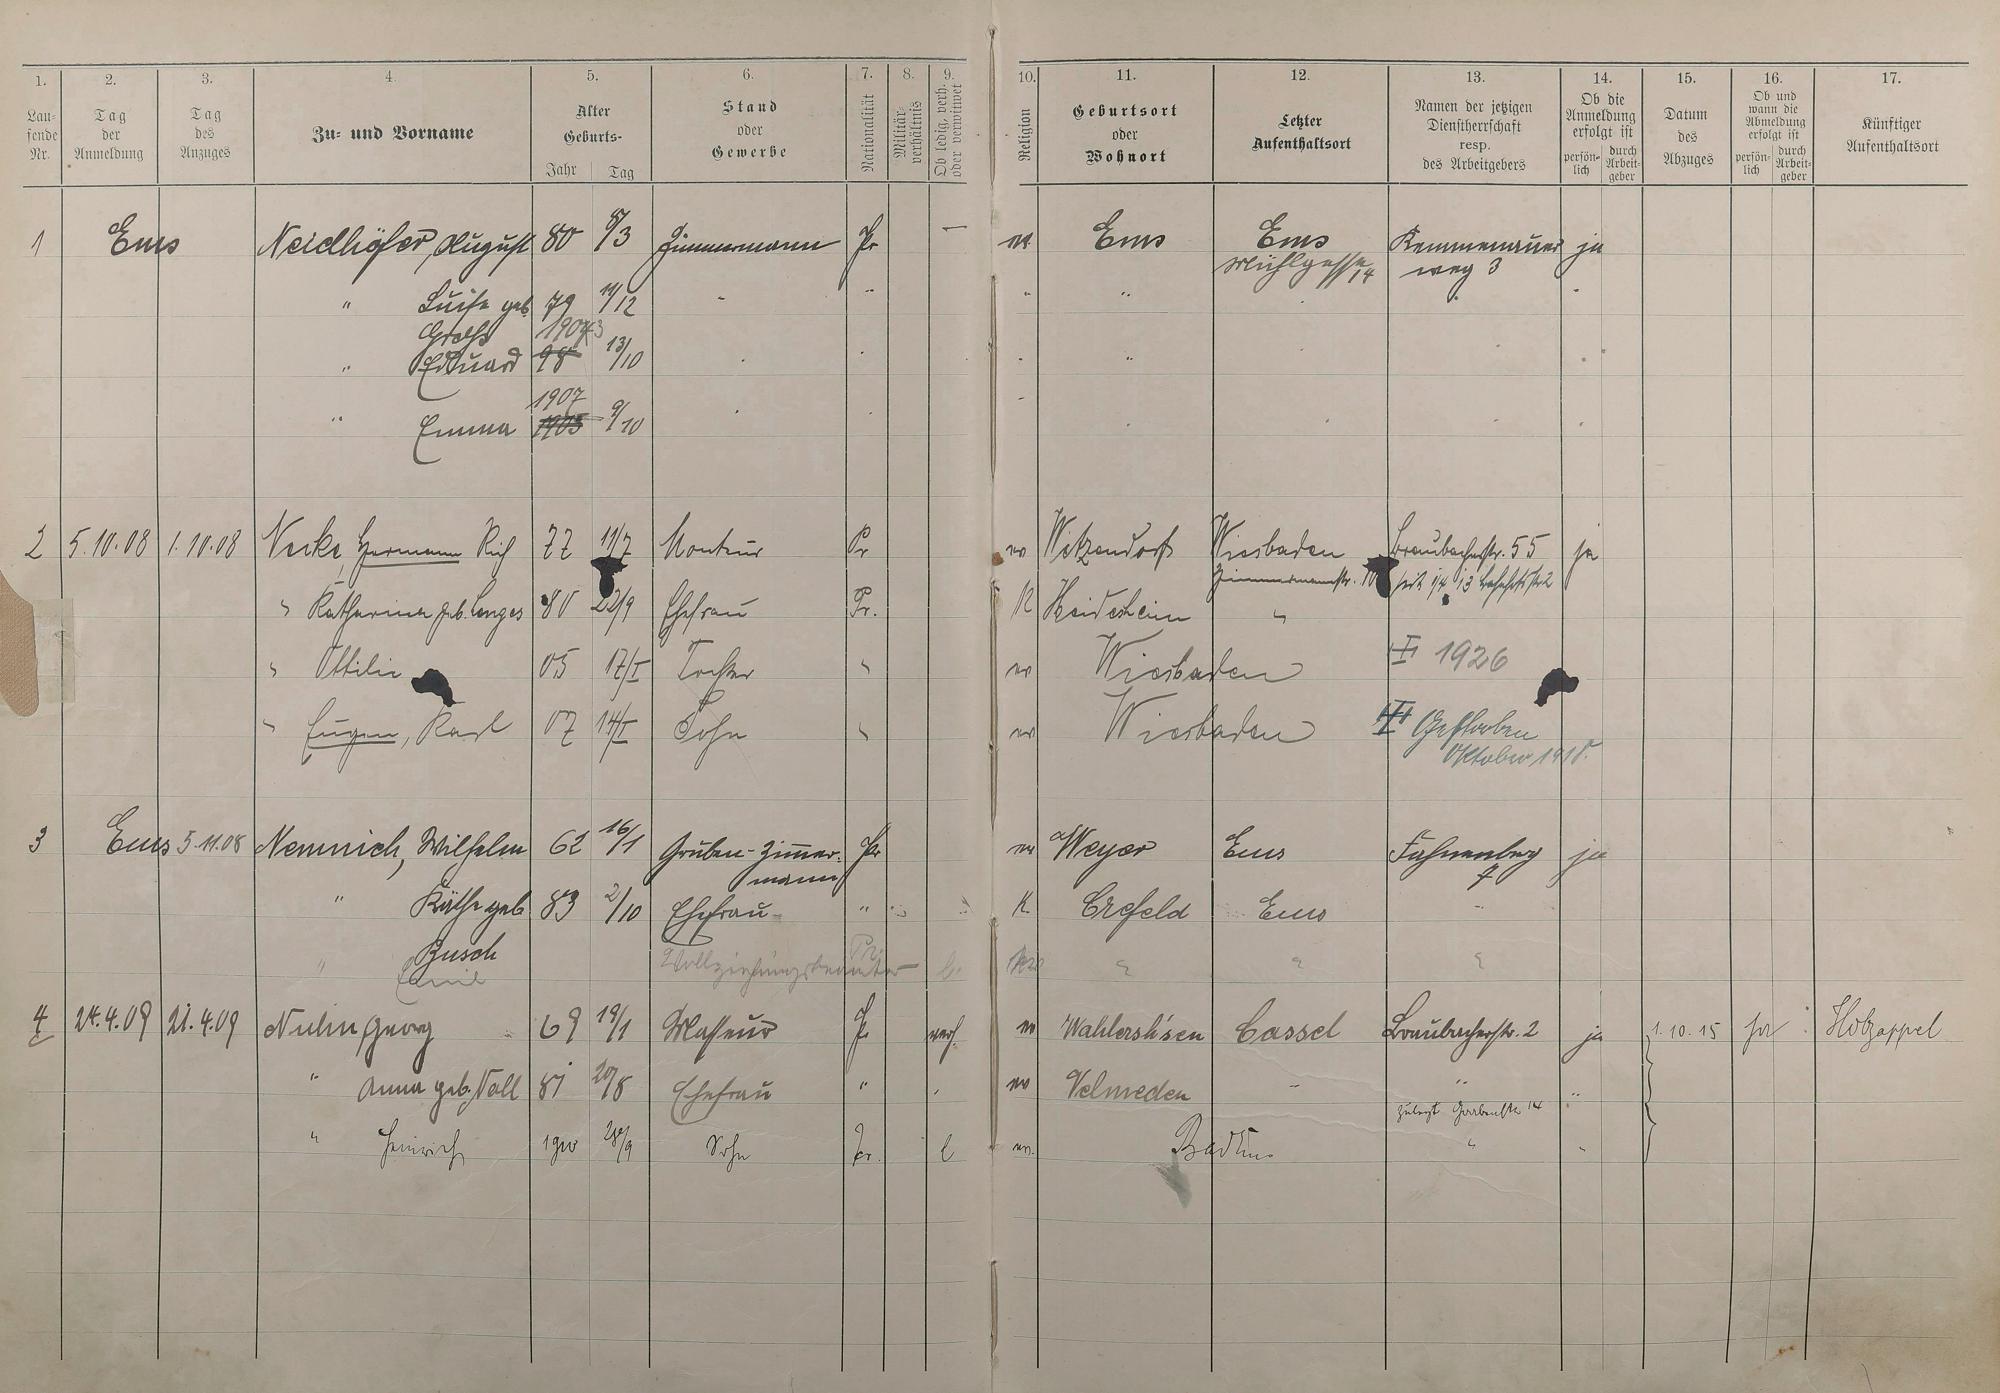 1. 2. 3. 4. 5. 6. 7. 8. 9. 10. 11. 12. 13. 14. 15. 16. 17.
Lau-
fende
Nr.
Tag
der
Anmeldung
Tag
des
Anzuges
Zu- und Vorname
Alter
Geburts-
Jahr Tag
Stand
oder
Gewerbe
Nationalität
Militär-
verhältnis
Ob ledig, verh.
oder verwitwet
Religion
Geburtsort
oder
Wohnort
Letzter
Aufenthaltsort
Namen der jetzigen
Dienstherrschaft
resp.
des Arbeitgebers
Ob die
Anmeldung
erfolgt ist
persön-
lich
durch
Arbeit-
geber
Datum
des
Abzuges
Ob und
wann die
Abmeldung
erfolgt ist
persön-
lich
durch
Arbeit-
geber
Künftiger
Aufenthaltsort
1 Ems Neidhöfer, August 80 8/3 Zimmermann Pr ev. Ems Ems Kemmenauer ja
Mühlgasse 14 weg 3
" Luise geb. 79 11/12 " " " "
Groß
" Eduard 98 13/10 "
1907
" Emma 1903 9/10
2 5.10.08 1.10.08 Necke, Hermann Rich 77 11/7 Monteur Pr ev Witzendorf Wiesbaden Braubacherstr. 55 ja
Zimmermannstr. 10 seit 1/4 13 Bahnhofstr 2
" Katharina geb. Lenges 80 22/9 Ehefrau Pr. K Heidesheim "
" Ottilie 05 17/I Tochter " ev Wiesbaden 1926
" Eugen, Karl 07 14/I Sohn " ev Wiesbaden Gestorben
Oktober 1918.
3 Ems 5.11.08 Nemnich, Wilhelm 62 16/1 Gruben-Zimmer- Pr ev Weyer Ems Fahnenberg ja
mann 7
" Käthe geb 83 2/10 Ehefrau " K. Crefeld Ems "
Busch
" Emil Vollziehungsbeamter Pr. l. " " "
4 24.4.09 21.4.09 Nuhn, Georg 69 19/1 Masseur Pr verh. ev Cassel Braubacherstr. 2 ja 1.10.15 ja Holzappel
" Anna geb. Noll 81 20/8 Ehefrau " " ev Velmeden " " "
zuletzt Grabenstr 14
" Heinrich Sohn Pr. l ev. Bad Ems " "